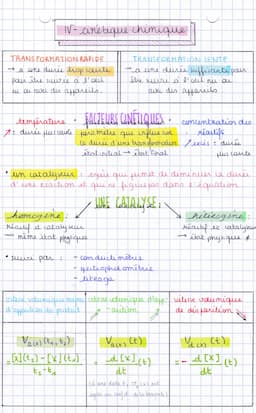 IV - cinétique chimique
TRANSFORMATION RAPIDE
→ a une durée trop courte
pour être suivie à l'œil
nu ou avec des appareils.
TRANSFORMATION LENTE
→ a une durée suffisante pour
être suivie à l'œil nu ou
avec des appareils
température
↗ : durée plus courte
• FACTEURS CINÉTIQUES •
paramètres qui influencent
la durée d'une transformation
état initial → état final
concentration des
réactifs
↗ : durée plus
courte
• un catalyseur : espèce qui permet de diminuer la durée
d'une réaction et qui ne figure pas dans l'équation.
UNE CATALYSE :
homogène :
réactif et catalyseur
→ même état physique
hétérogène :
réactif et catalyseur
→ état physique ≠
• suivie par : - conductimétrie
- spectrophotométrie
- titrage
vitesse volumique moyenne
d'apparition du produit
vitesse volumique d'appa-
rition
vitesse volumique
de disparition
= [X](t₂) - [X](t₁)
t₂ - t₁
= d[X] (t)
dt
= - d[X] (t)
dt